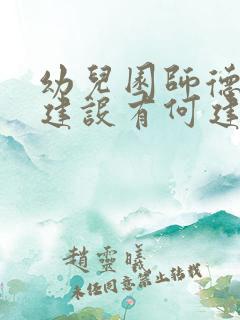 幼兒園師德
建設有何建
趙靈曦
未經同意禁止轉載